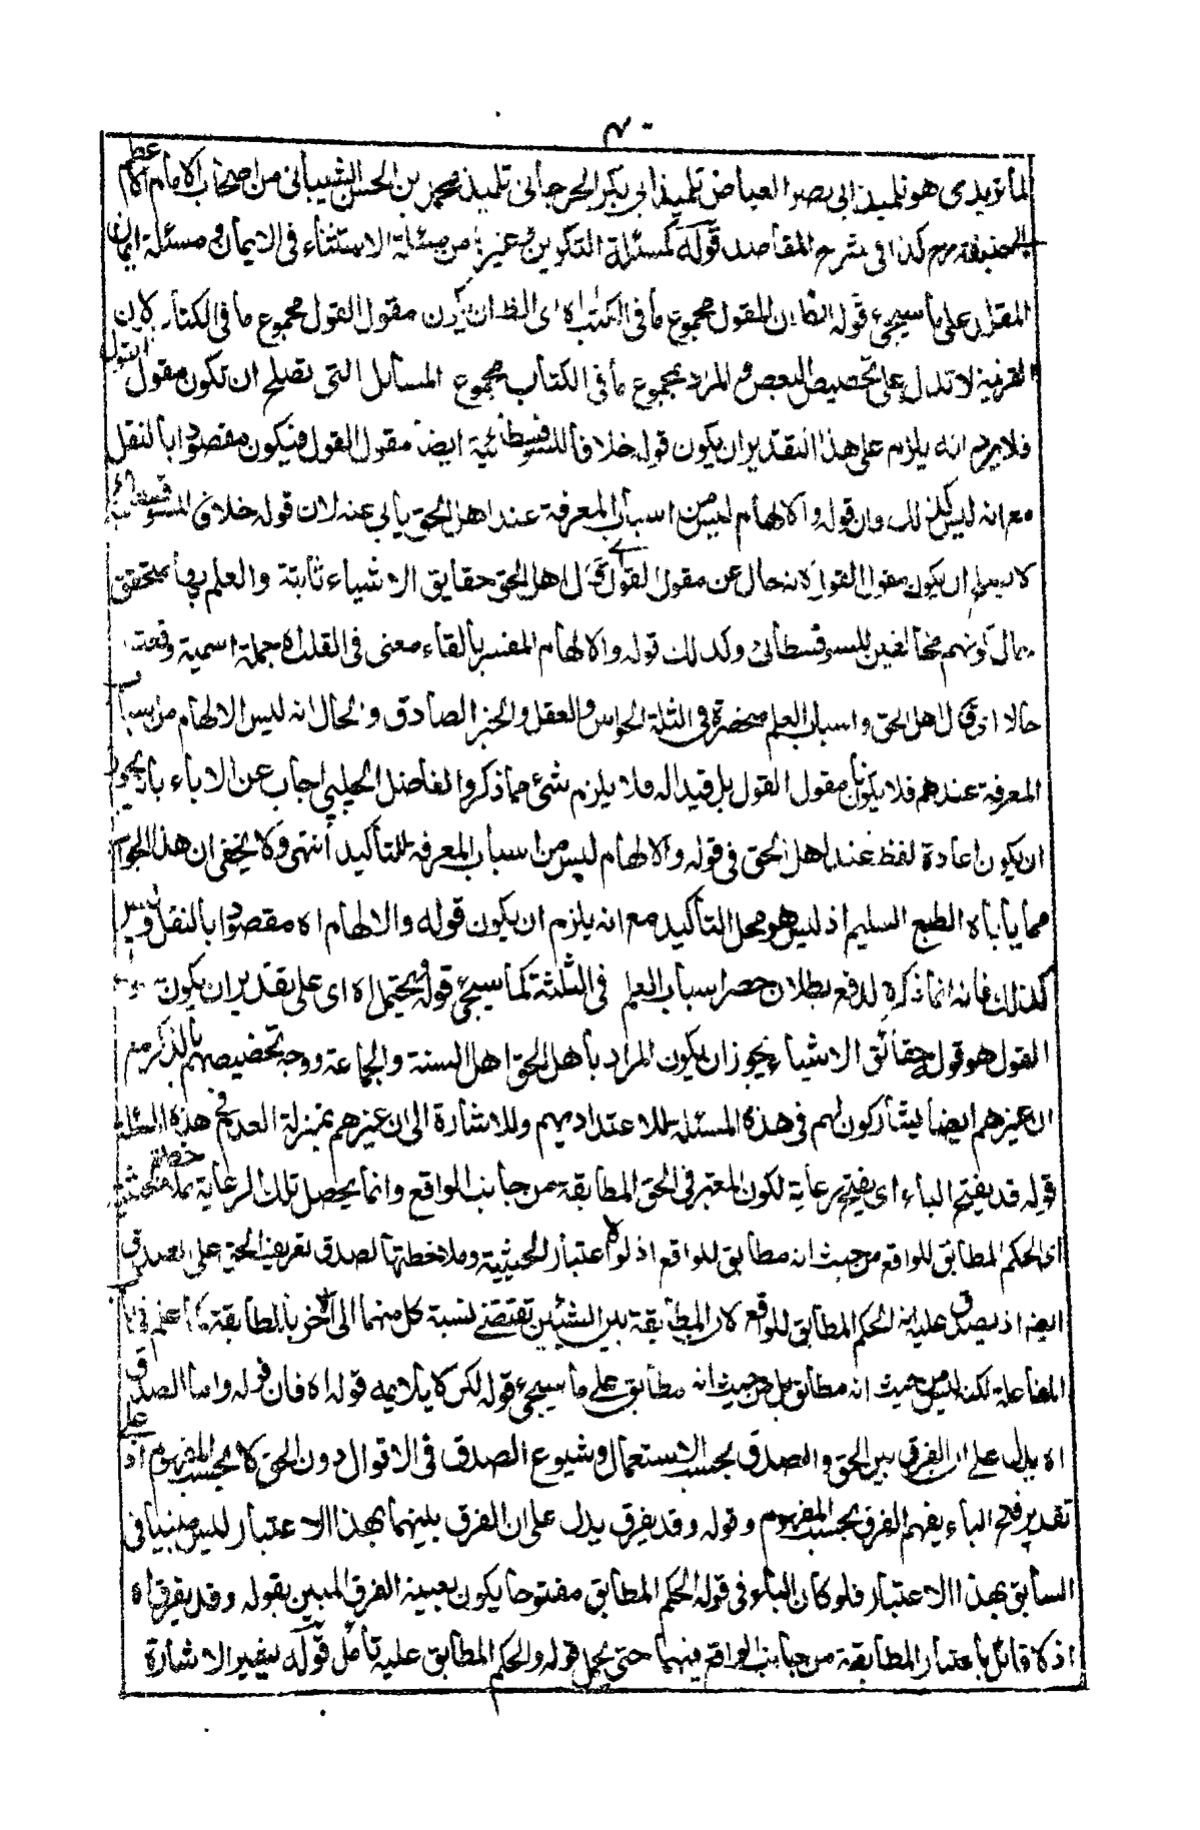 ٣٠
الماتريدى هو تلميذ ابى نصر العياض تلميذ ابى بكر الجرجانى تلميذ محمد بن الحسن الشيبانى من اصحاب الامام الاعظم
ابى حنيفة رح كذا فى شرح المقاصد قوله كمسئلة التكوين وغيرها من مسئلة الاستثناء فى الايمان ومسئلة ايمان
المقلد على ما سيجئ قوله الظ ان المقول مجموع ما فى الكتب اه اى الظ ان يكون مقول القول مجموع ما فى الكتاب لان
القرينة لا تدل على تخصيص البعض والمراد بمجموع ما فى الكتاب مجموع المسائل التى تصلح ان تكون مقول القول
فلا يرد انه يلزم على هذا التقدير ان يكون قوله خلافا للسوفسطائية ايضا مقول القول فيكون مقصودا بالنقل
مع انه ليس كذلك وان قوله والالهام ليس من اسباب المعرفة عند اهل الحق يأبى عنه لان قوله خلافا للسوفسطائية
لا يصلح ان يكون مقول القول لانه حال عن مقول القول اى قال اهل الحق حقايق الاشياء ثابتة والعلم بها متحقق
حال كونهم مخالفين للسوفسطائى وكذلك قوله والالهام المفسر بالقاء معنى فى القلب اه جملة اسمية وقعت
حالا اى قال اهل الحق واسباب العلم منحصرة فى الثلثة الحواس والعقل والخبر الصادق والحال انه ليس الالهام من اسباب
المعرفة عندهم فلا يكونان مقول القول بل قيدا له فلا يلزم شئ مما ذكر والفاضل الچلپى اجاب عن الاباء بانه يجوز
ان يكون اعادة لفظ عند اهل الحق فى قوله والالهام ليس من اسباب المعرفة للتأكيد انتهى ولا يخفى ان هذا الجواب
مما يأباه الطبع السليم اذ ليس هو محل التأكيد مع انه يلزم ان يكون قوله والالهام اه مقصودا بالنقل وليس
كذلك فانه انما ذكره لدفع بطلان حصر اسباب العلم فى الثلثة كما سيجئ قوله ويحتمل اه اى على تقدير ان يكون
القول هو قوله حقائق الاشياء يجوز ان يكون المراد باهل الحق اهل السنة والجماعة ووجه تخصيصهم بالذكر مع
ان غيرهم ايضا يشاركون لهم فى هذه المسئلة للاعتداد بهم وللاشارة الى ان غيرهم بمنزلة العدم فى هذه المسئلة
قوله قد يفتح الباء اى يفتح رعاية لكون المعتبر فى الحق المطابقة من جانب الواقع وانما يحصل تلك الرعاية بملاحظة الحيثية
اى الحكم المطابق للواقع من حيث انه مطابق للواقع اذ لولا اعتبار الحيثية وملاحظتها لصدق تعريف الحق على الصدق
ايضا اذ يصدق عليه انه الحكم المطابق للواقع لان المطابقة بين الشيئين تقتضى نسبة كل منهما الى الاخر بالمطابقة كما علم فى باب
المفاعلة لكنه ليس من حيث انه مطابق بل من حيث انه مطابق على ما سيجئ قوله لكن لا يلايمه قوله اه فان قوله واما الصدق
اه يدل على ان الفرق بين الحق والصدق بحسب الاستعمال وشيوع الصدق فى الاقوال دون الحق لا بحسب المفهوم اذ على
تقدير فتح الباء يفهم الفرق بحسب المفهوم وقوله وقد يفرق يدل على ان الفرق بينهما بهذا الاعتبار ليس مبنيا فى
السابق بهذا الاعتبار فلو كان الباء فى قوله الحكم المطابق مفتوحا يكون بعينه الفرق المبين بقوله وقد يفرق اه
اذ لا قائل باعتبار المطابقة من جانب الواقع فيهما حتى يحمل قوله والحكم المطابق عليه تأمل قوله يشير الاشارة